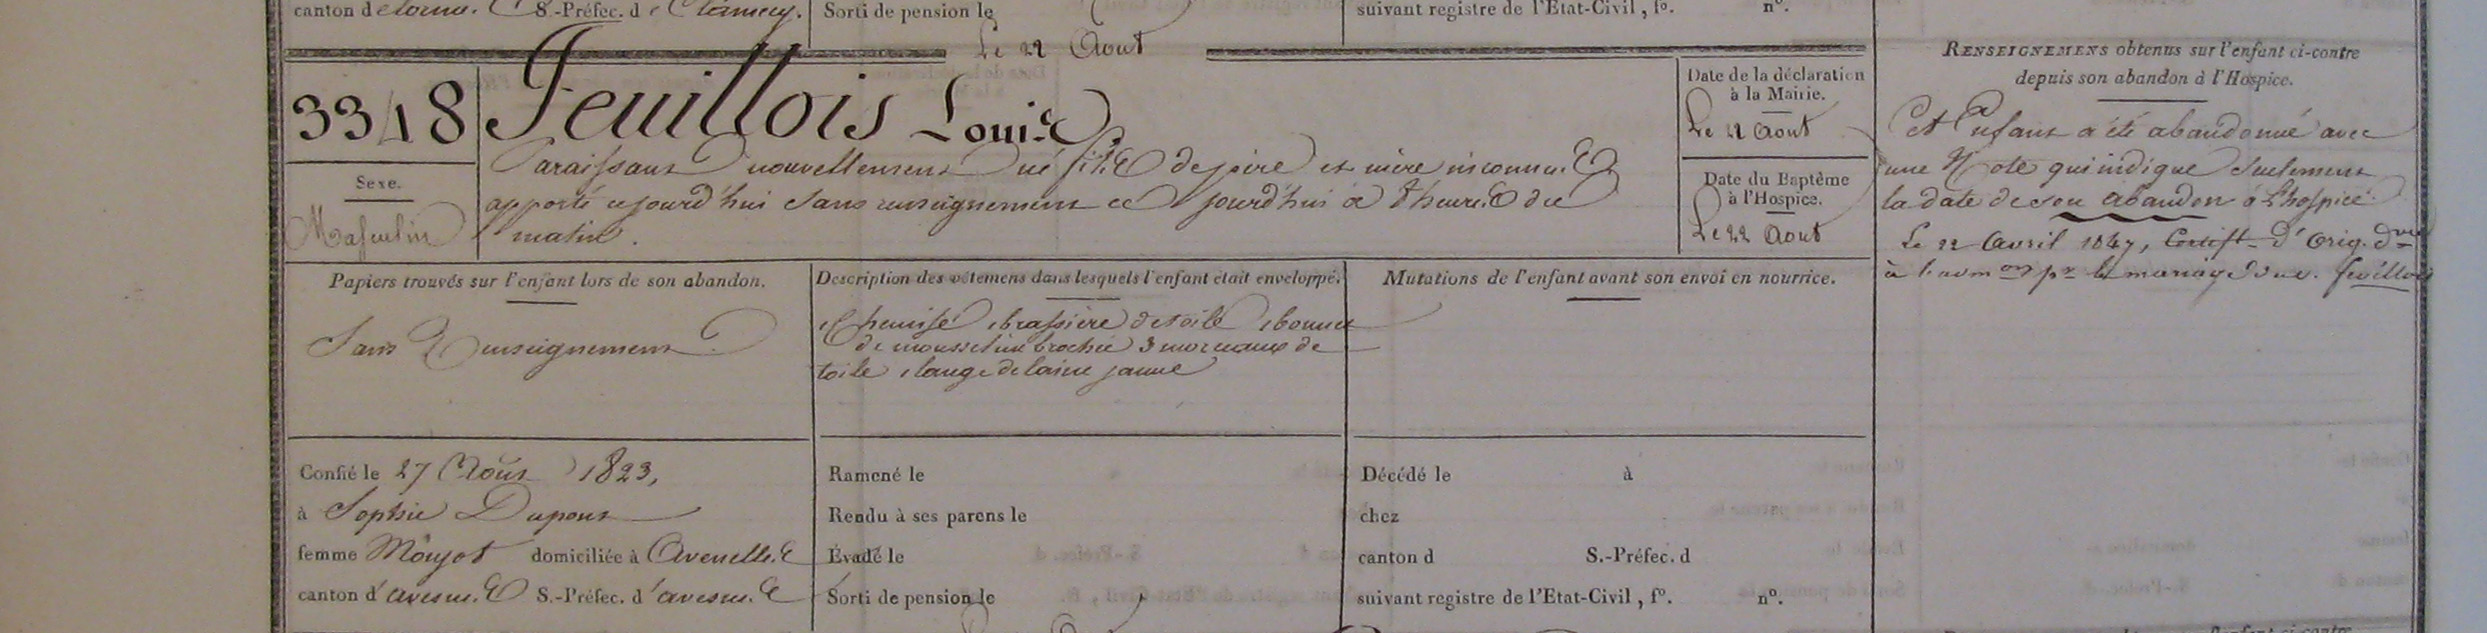 canton d S.-Préfec. d e Clamecy.
Sorti de pension le
suivant registre de l'Etat-Civil, fo. no.
Le 22 Aout
3348
Feuillois Louis
Paraissant nouvellement né fils de père et mère inconnus
apporté cejourd'hui sans renseignement ce jourd'hui à heures du
matin.
Sexe.
Masculin
Date de la déclaration
à la Mairie.
Le 22 Aout
Date du Baptême
à l'Hospice.
Le 22 Aout
RENSEIGNEMENS obtenus sur l'enfant ci-contre
depuis son abandon à l'Hospice.
Cet Enfant a été abandonné avec
une Note qui indique seulement
la date de son abandon à l'hospice.
Le 22 Avril 1847, Certift. d'Orig. dvré
à pr le mariage Feuillois
Papiers trouvés sur l'enfant lors de son abandon.
Sans Renseignement.
Description des vêtemens dans lesquels l'enfant était enveloppé.
1 Chemise 1 brassière de toile 1 bonnet
de mousseline brochée 3 morceaux de
toile 1 lange de laine jaune
Mutations de l'enfant avant son envoi en nourrice.
Confié le 27 Août 1823,
à Sophie Dupont
femme Moujot domiciliée à Avenelles
canton d'avesnes S.-Préfec. d'avesnes
Ramené le
Rendu à ses parens le
Évadé le
Sorti de pension le
Décédé le à
chez
canton d S.-Préfec. d
suivant registre de l'Etat-Civil, fo. no.